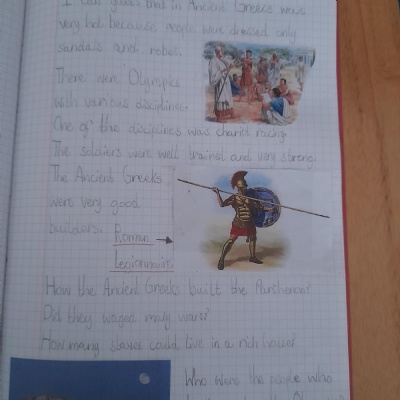 I can guess that in Ancient Greeks was
very hot because people were dressed only
sandals and robes.
There were Olympics
with various disciplines.
One of the disciplines was chariot racing.
The soldiers were well trained and very strong.
The Ancient Greeks
were very good
builders. Roman
Legionnaire
How the Ancient Greeks built the Parthenon?
Did they waged many wars?
How many slaves could live in a rich house?
Who were the people who